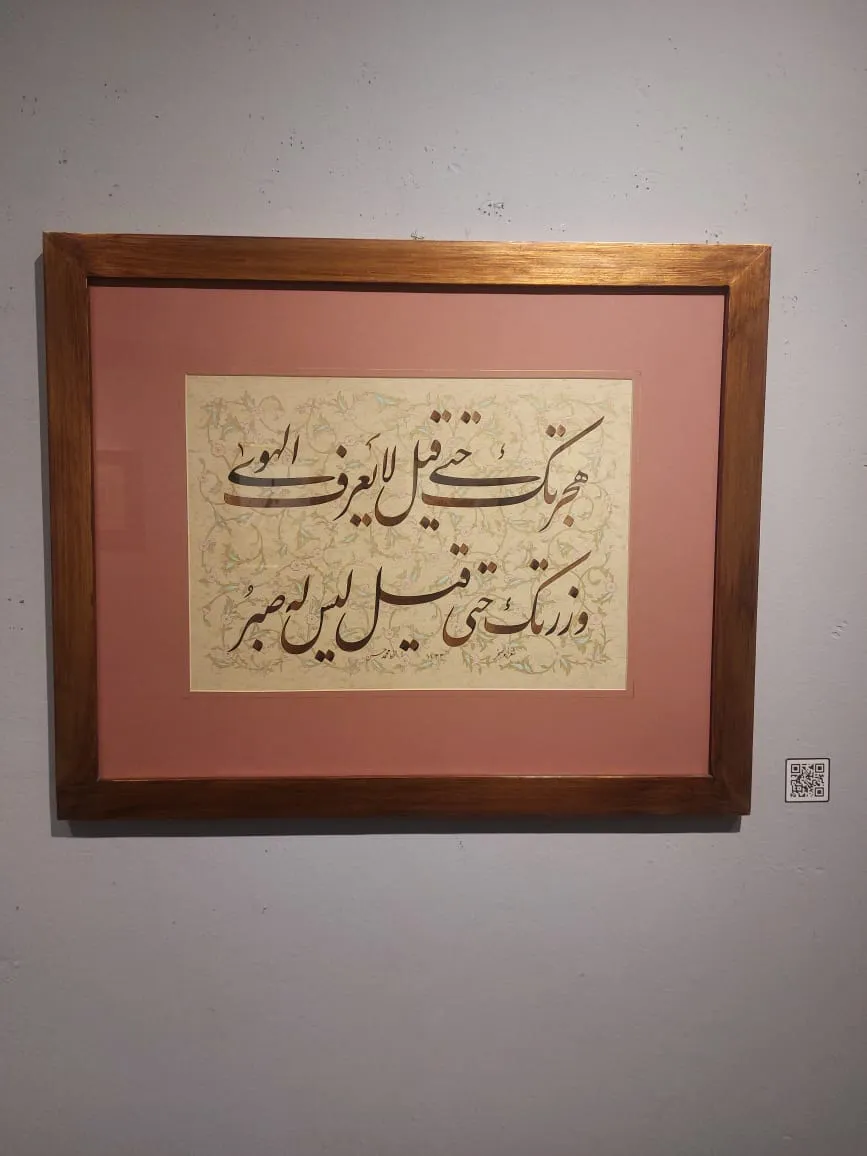 هجرتك حتى قيل لا يعرف الهوى
وزرتك حتى قيل ليس له صبرُ